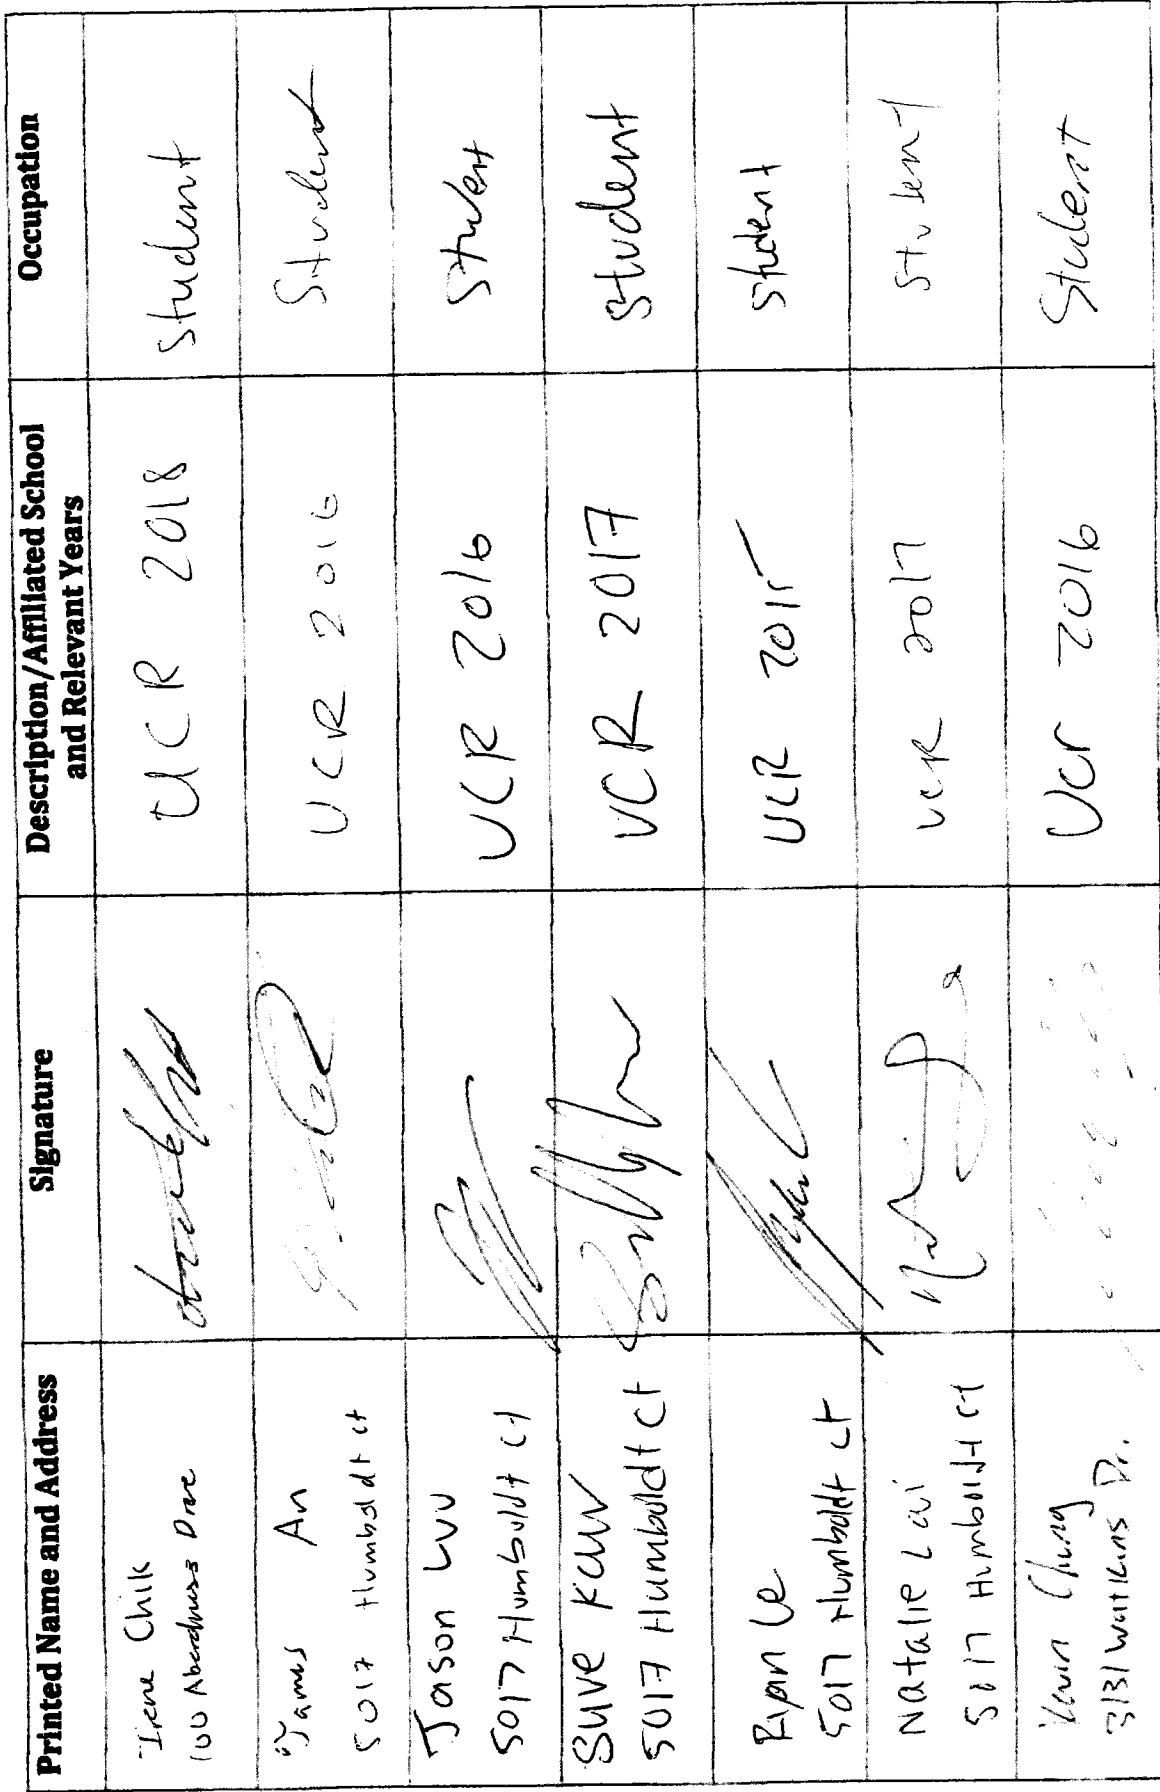 Printed Name and Address
Signature
Description/Affiliated School
and Relevant Years
Occupation
Irene Chik
100 Aberdeen Drive
UCR 2018
student
James An
5017 Humboldt ct
UCR 2016
Student
Jason Luu
5017 Humboldt Ct
UCR 2016
Student
5017 Humboldt Ct
UCR 2017
Student
Ryan Le
5017 Humboldt ct
UCR 2015
Student
Natalie Lai
5017 Humboldt Ct
UCR 2017
Student
Kevin Chung
3131 Watkins Dr.
Ucr 2016
Student